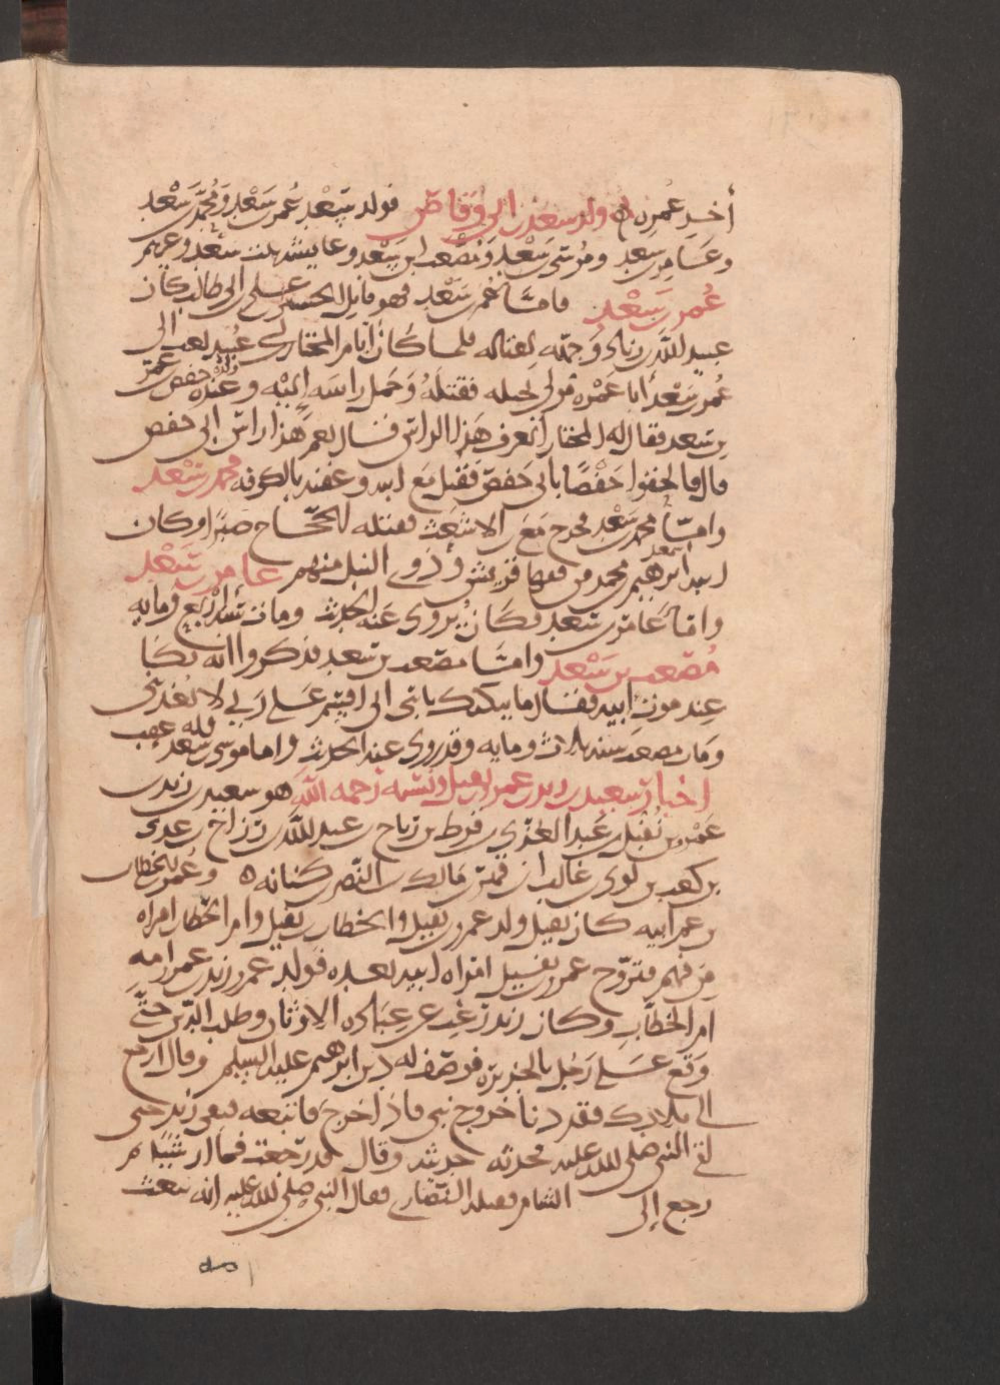 أخيه عمر ولد سعد بن ابي وقاص فولد سعد عمر بن سعد ومحمد بن سعد
وعامر بن سعد وموسى بن سعد ومصعب بن سعد وعايشه بنت سعد وغيرهم
عمر بن سعد فامّا عمر بن سعد فهو قاتل الحسين بن علي بن ابي طالب كان
عبيد الله بن زياد وجّهه لقتاله فلما كان ايام المختار بن عبيد بعث الى
عمر بن سعد أبا عمره مولى بجيله فقتله وحمل راسه إليه وعنده ولده حفص بن عمر
بن سعد فقال له المختار أتعرف هذا الراس فقال نعم هذا راس ابي حفص
قال فالحقوا حفصًا بأبي حفص فقتل مع ابيه وعقبه بالكوفه محمد بن سعد
وامّا محمد بن سعد فخرج مع ابن الاشعث فقتله الحجّاج صبرًا وكان
ابنه ابرهيم بن محمد من فقها قريش وذوي النبل منهم عامر بن سعد
وامّا عامر بن سعد فكان يُروى عنه الحديث ومات سنه اربع ومايه
مُصعب بن سعد وامّا مصعب بن سعد فذكروا انه بكا
عند موت ابيه فقال ما يبكيك يا بني اني اقسم على ربي لا يُعذبني
ومات مصعب سنه ثلاث ومايه وقد روي عنه الحديث واما موسى بن سعد فله عقب
اخبار سعيد بن زيد بن عمر بن نفيل ونسبه رحمه الله هو سعيد بن زيد بن
عمرو بن نُفيل بن عبد العزّي بن قرط بن رياح بن عبد الله بن رزاح بن عدي
بن كعب بن لوي بن غالب بن فهر بن مالك بن النّضر بن كنانه وعُمر بن الخطاب
بن عم ابيه كان نفيل ولد عمرو بن نفيل والخطاب بن نفيل وام الخطاب امراه
من فهم فتزوّج عمرو بن نفيل امراه ابيه بعده فولد عمرو زيد بن عمرو امه
ام الخطّاب وكان زيد رغب عن عباده الاوثان وطلب الدّين حتّى
وقع على رجل بالجزيره فوصف له دين ابرهيم عليه السلم وقال ارجع
الى بلادك فقد دنا خروج نبي فاذا خرج فاتبعه فبقي زيد حتى
لقي النبي صلى الله عليه فحدثه حديثه وقال قد رجعت فما ار شيئًا ثم
رجع إلى الشام فقتله النصارى فقال النبي صلى الله عليه انه يبعث